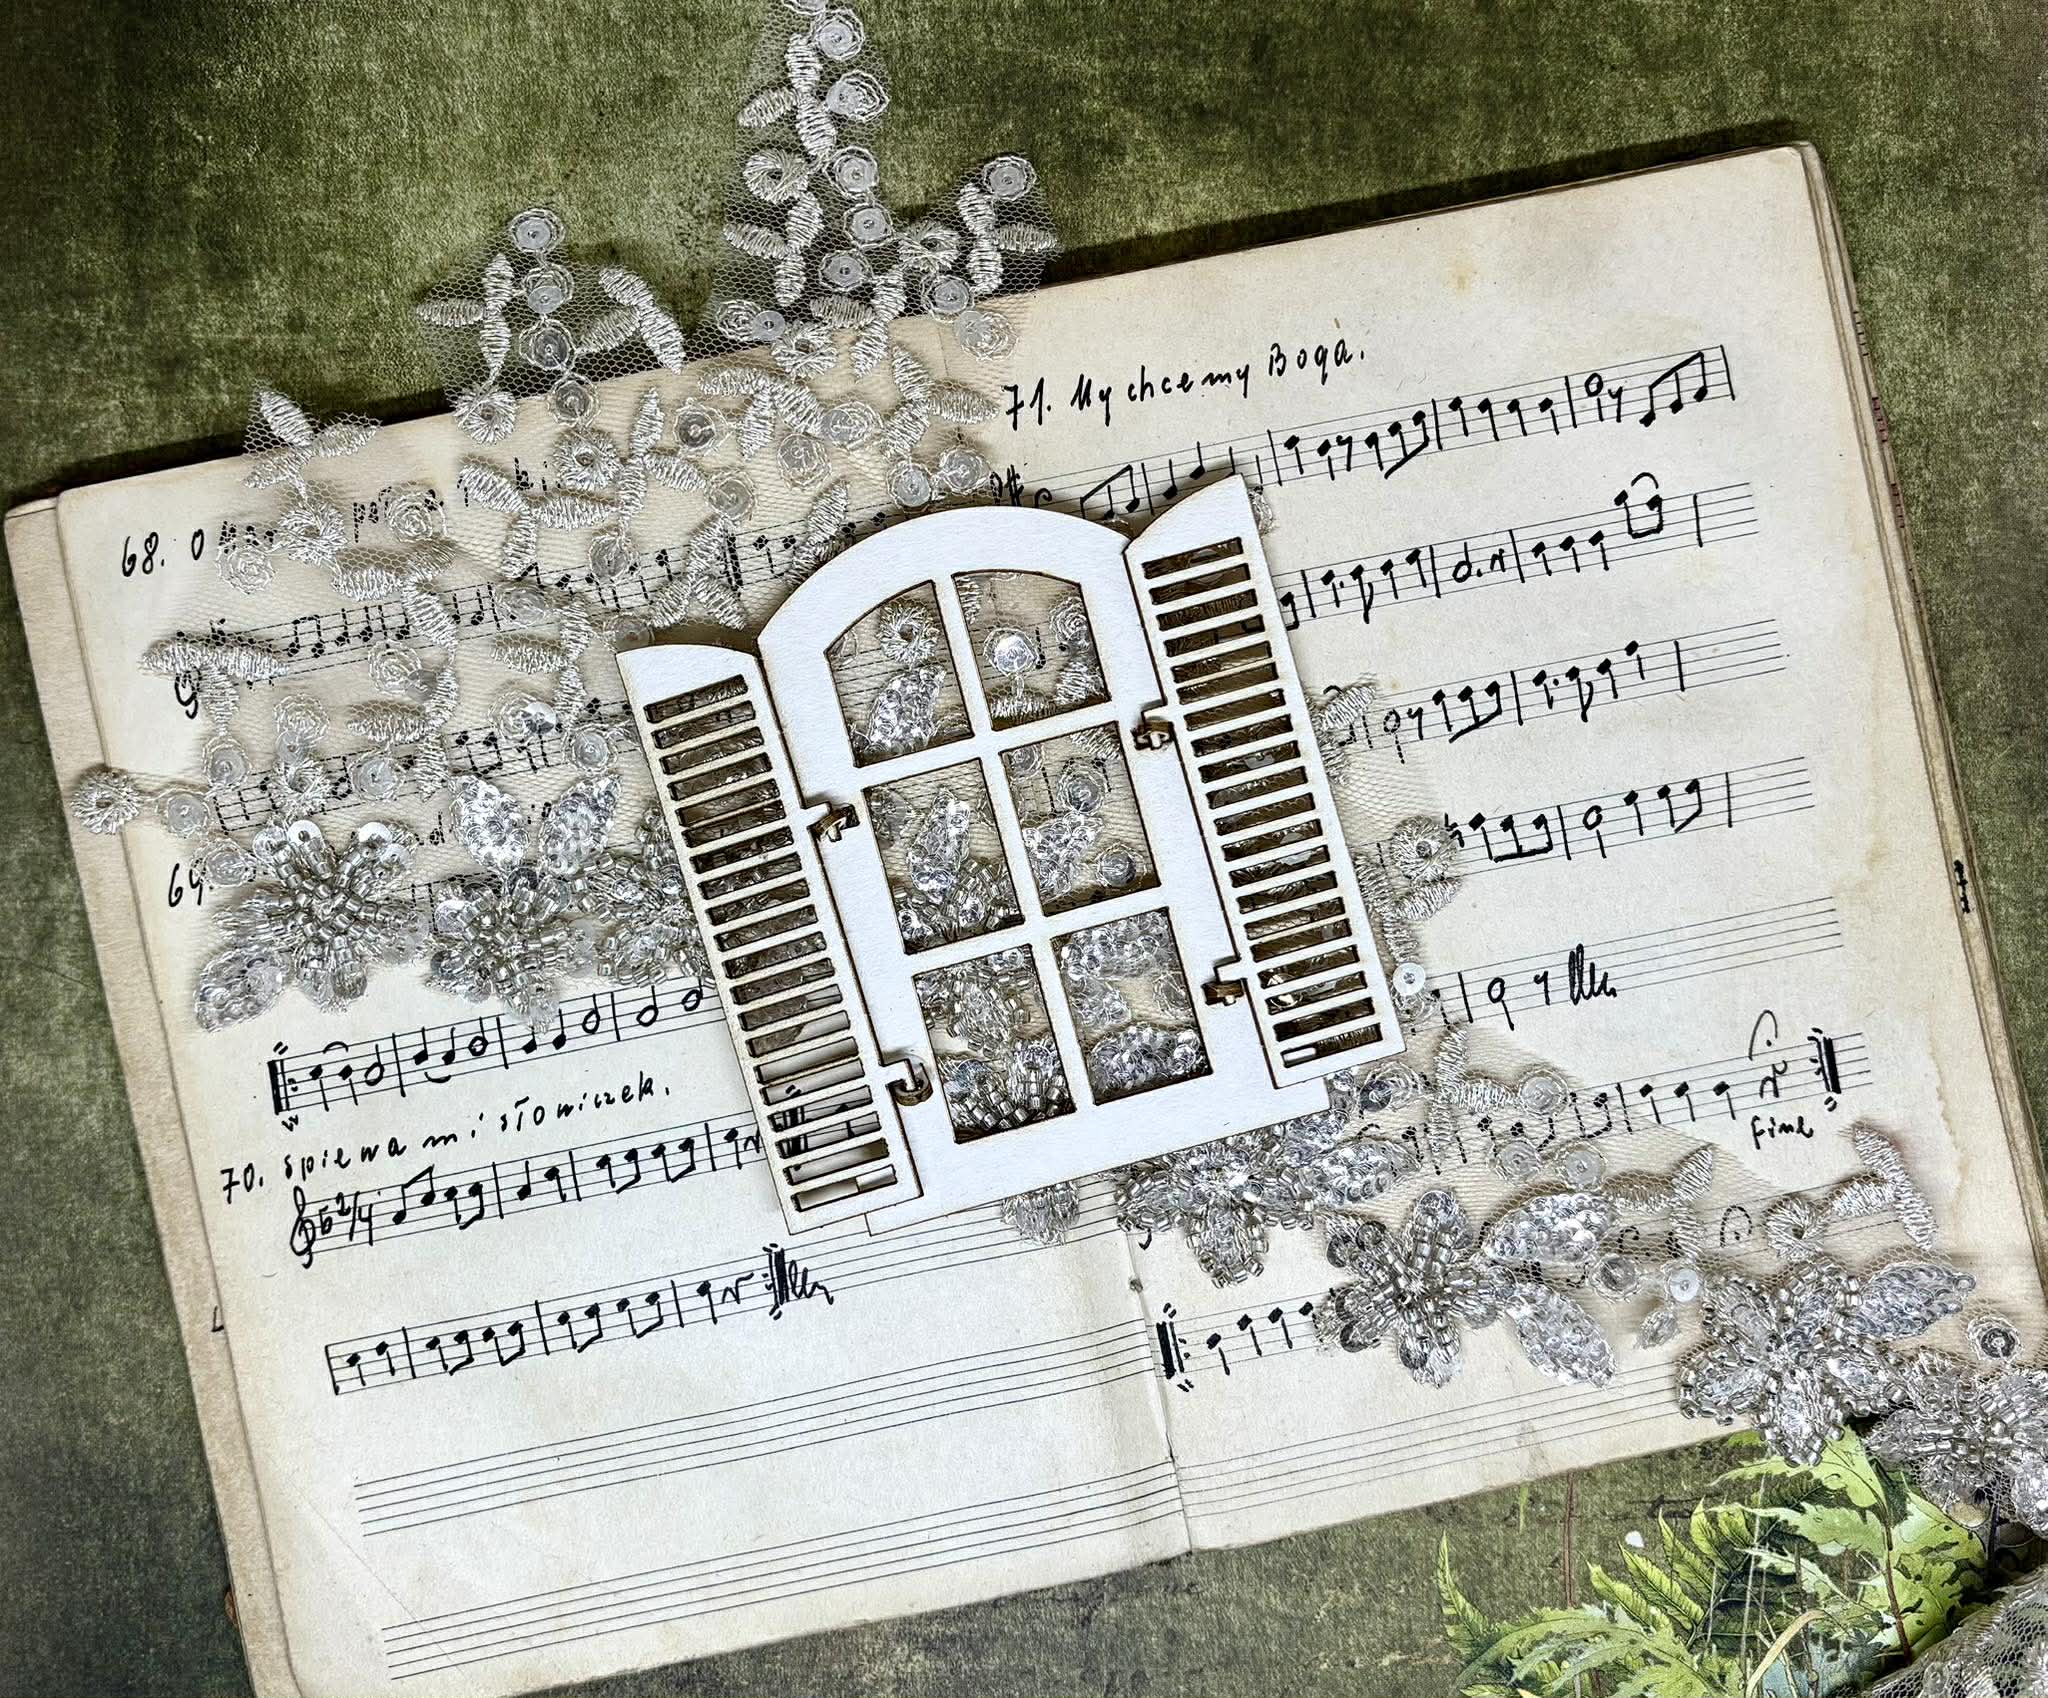 68. O
69.
70. Spiewa mi słowiczek.
2/4
71. My chcemy Boga.
fine